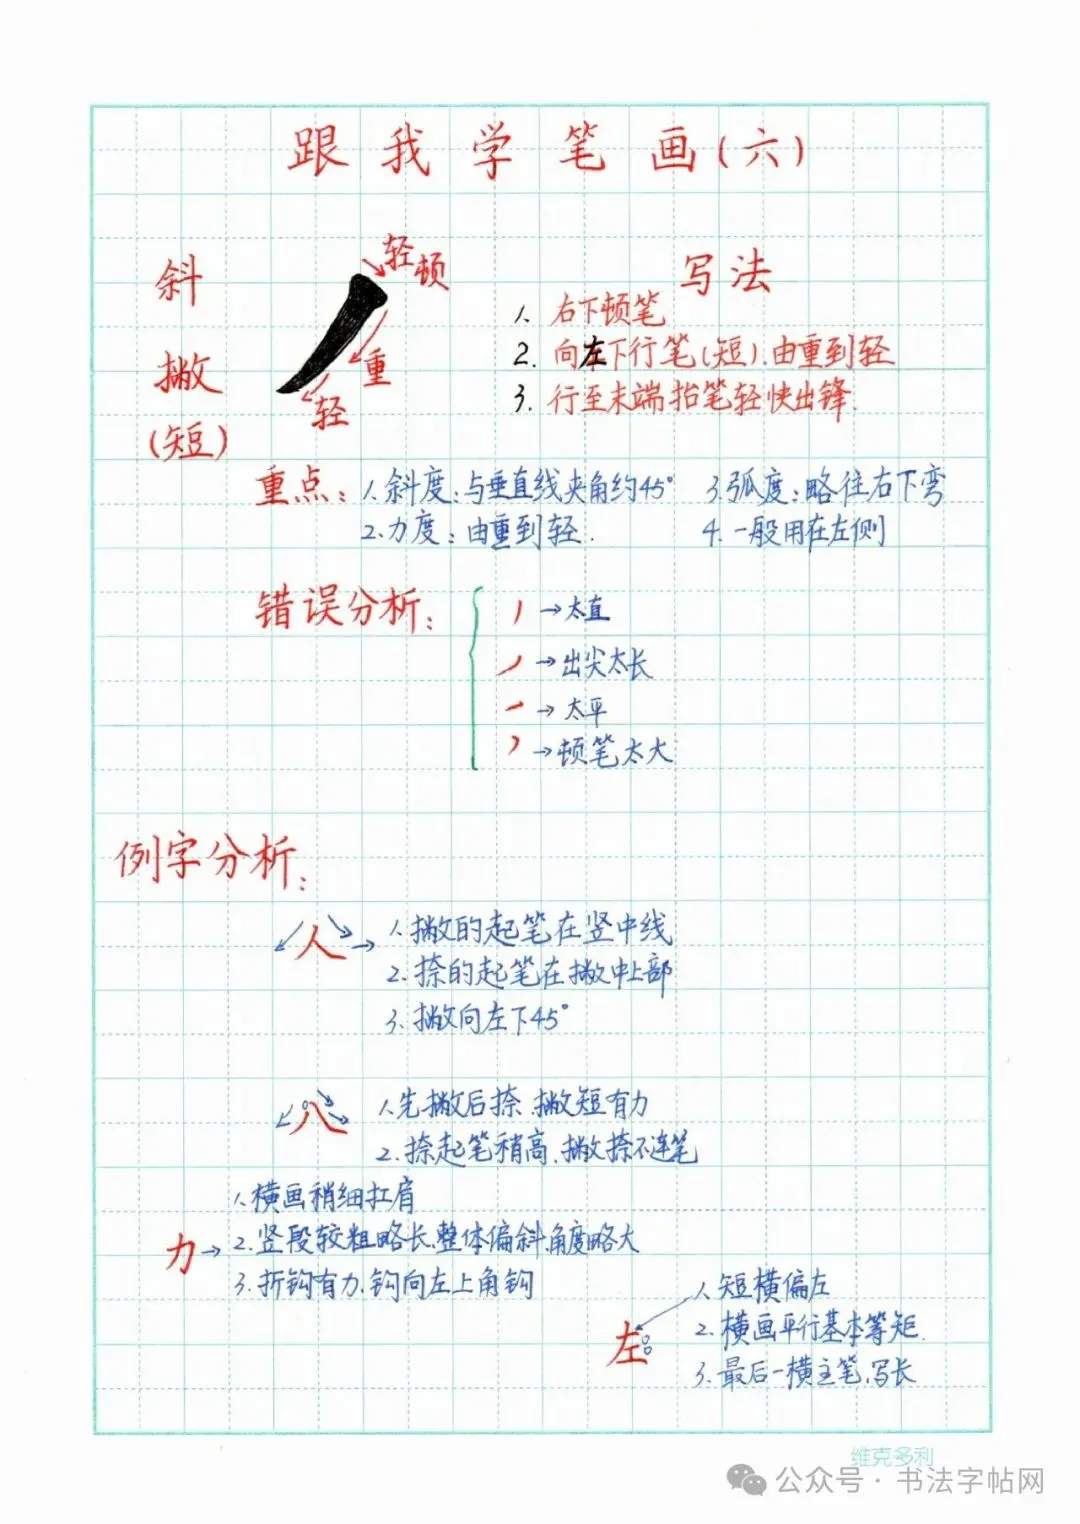 跟我学笔画(六)
斜撇(短)
轻顿
重
轻
写法
1、右下顿笔
2.向左下行笔(短).由重到轻
3.行至末端抬笔轻快出锋.
重点：1.斜度：与垂直线夹角约45° 3.弧度：略往右下弯
2、力度：由重到轻. 4.一般用在左侧
错误分析：
→太直
→出尖太长
→太平
→顿笔太大
例字分析：
人→
1.撇的起笔在竖中线
2.捺的起笔在撇中上部
3.撇向左下45°
八
1.先撇后捺、撇短有力
2.捺起笔稍高、撇捺不连笔
力→
1、横画稍细扛肩
2.竖段较粗略长、整体偏斜、角度略大
3.折钩有力、钩向左上角钩
左
1、短横偏左
2.横画平行基本等矩.
3.最后一横主笔、写长
维克多利
公众号·书法字帖网